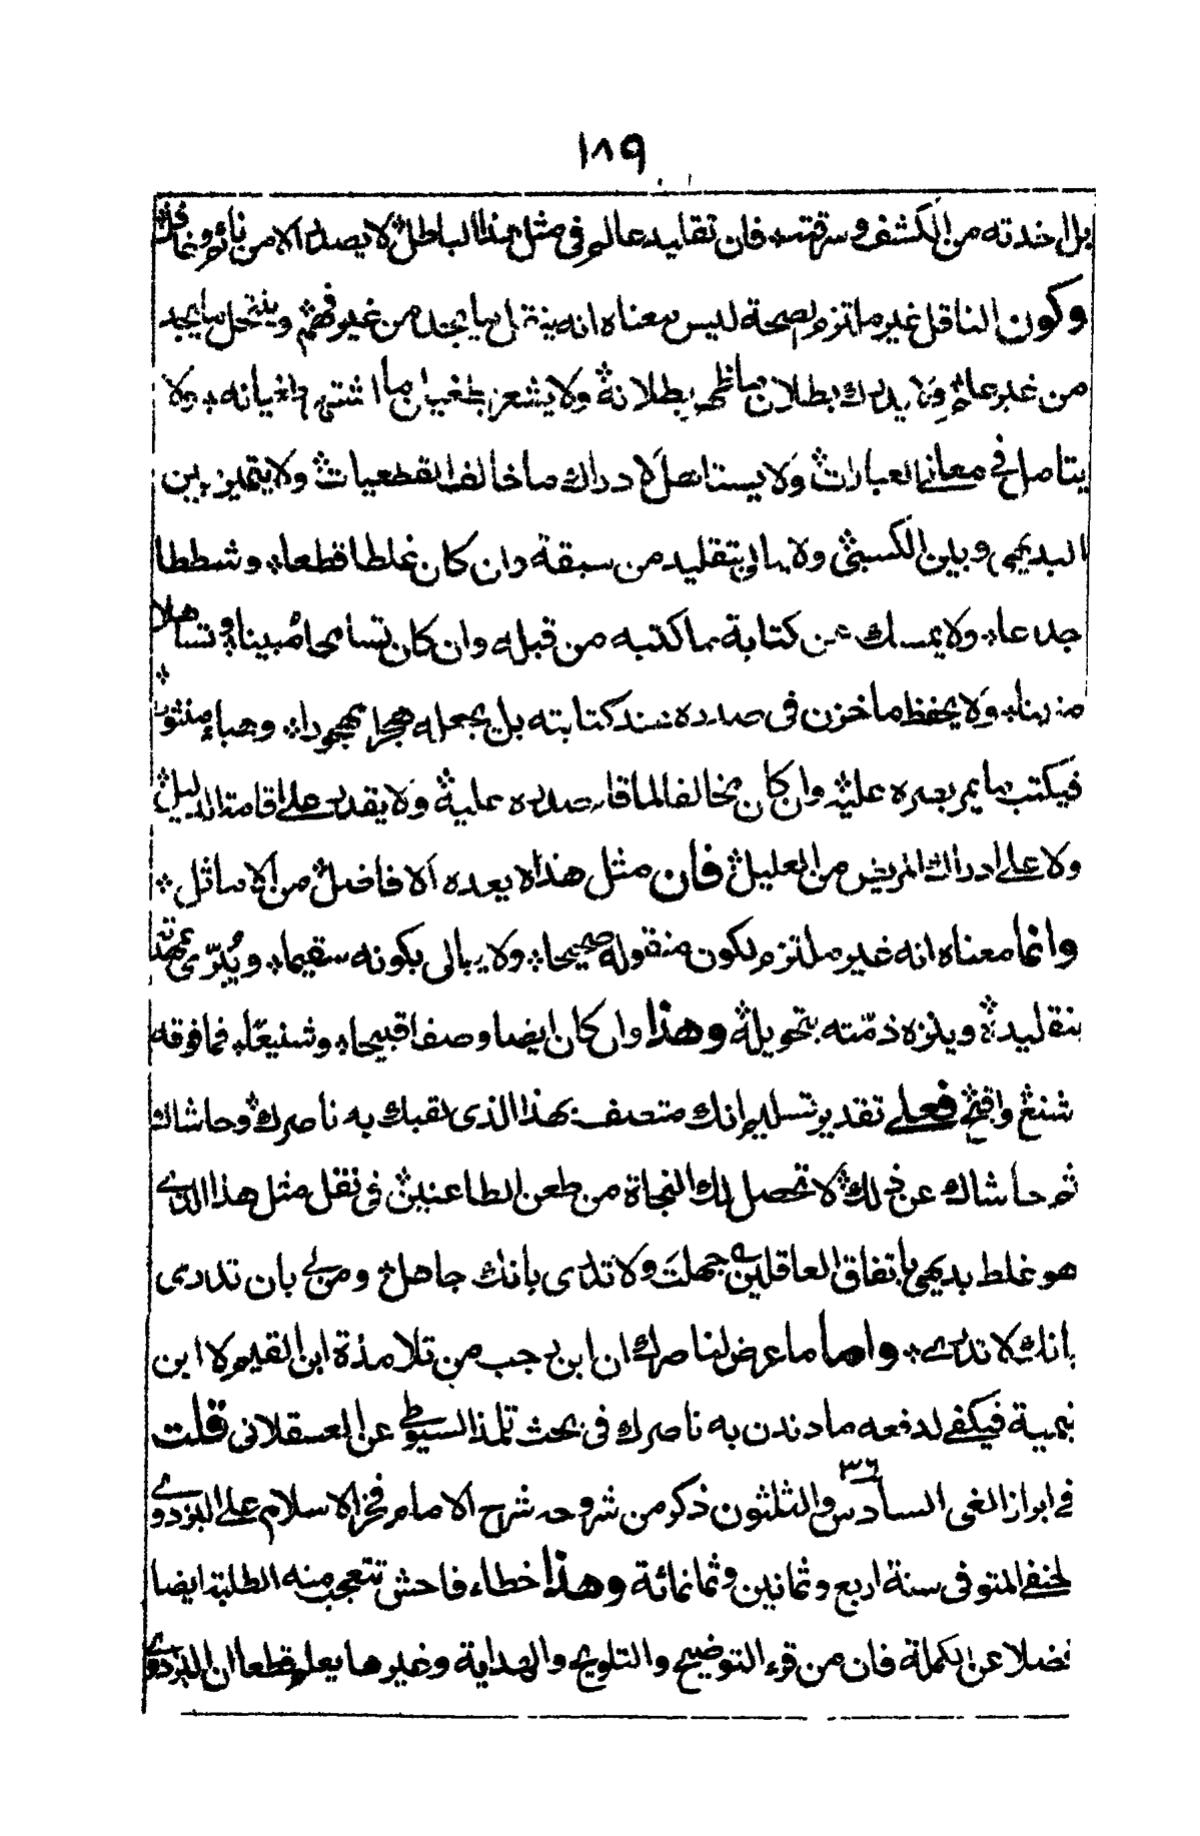 ١٨٩
بل اخذته من الكشف وسرقته فان تقليد عالم في مثل هذا الباطل لا يصدر الا من نائم
وكون الناقل غير ملتزم لصحة ليس معناه انه ينقل ما يجد من غير فهم وينتحل ما يجد
من غير علم ولا يدرك بطلان ما ظهر بطلانه ولا يشعر بطغيان ما اشتهر طغيانه ولا
يتامل في معاني العبارات ولا يستاهل لادراك ما خالف القطعيات ولا يتميز بين
البديهي وبين الكسبي ولا يبالي بتقليد من سبقه وان كان غلطا قطعا وشططا
جدعا ولا يمسك عن كتابة ما كتبه من قبله وان كان تسامحا مبينا وتساهلا
مزينا ولا يحفظ ما خزن في صدره عند كتابته بل يجعله هجرا مهجورا وهباء منثورا
فيكتب ما يمر بصره عليه وان كان مخالفا لما قام صدره عليه ولا يقدر على اقامة الدليل
ولا على ادراك المريض من العليل فان مثل هذا لا يعده الا فاضل من الاماثل
وانما معناه انه غير ملتزم لكون منقوله صحيحا ولا يبالي بكونه سقيما ويبرئ عهدته
بتقليده وينزه ذمته بتحويله وهذا وان كان ايضا وصفا قبيحا وشنيعا فما فوقه
شنع واقبح فعلى تقدير تسليم انك متصف بهذا الذي لقبك به ناصرك وحاشاك
ثم حاشاك عن ذلك لا تحصل لك النجاة من طعن الطاعنين في نقل مثل هذا الذي
هو غلط بديهي باتفاق العاقلين جهلت ولا تدري بانك جاهل ومن لي بان تدري
بانك لا تدري واما ما عرض لناصرك ان ابن رجب من تلامذة ابن القيم لا ابن
تيمية فيكفي لدفعه ما دندن به ناصرك في بحث تلمذ السيوطي عن العسقلاني قلت
في ابراز الغي السادس والثلثون ٣٦ ذكر من شروحه شرح الامام فخر الاسلام علي البزدوي
الحنفي المتوفى سنة اربع وثمانين وثمانمائة وهذا خطاء فاحش تتعجب منه الطلبة ايضا
فضلا عن الكملة فان من قرء التوضيح والتلويح والهداية وغيرها يعلم قطعا ان البزدوي